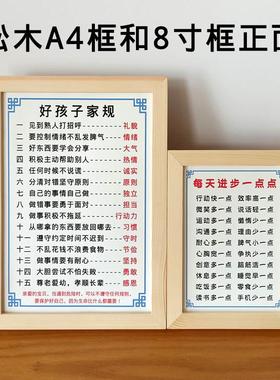 松木A4框和8寸框正面
好孩子家规
一 见到熟人打招呼----礼貌
二 要控制情绪不乱发脾气---情绪
三 好东西要学会分享----大气
四 积极主动帮助别人----热情
五 任何时候不说谎----诚实
六 分清对错坚守原则----原则
七 自己的事情自己做----独立
八 做错事要勇于面对----担当
九 做事积极不拖延----行动力
十 从哪拿的东西要放回哪去---习惯
十一 遵守约定时间不迟到----守时
十二 不乱花钱不浪费食物----节俭
十三 做事情要有耐心----坚持
十四 大胆尝试不怕失败----勇敢
十五 尊老爱幼，孝顺长辈----感恩
亲爱的宝贝，当遇到危险时，可以不遵守任何规则，
要保护好自己，因为生命比什么都重要！
每天进步一点点
行动快一点 效率高一点
微笑多一点 说话轻一点
运动多一点 懒惰少一点
沟通多一点 理由少一点
耐心多一点 脾气小一点
心胸宽一点 争执少一点
创意多一点
休息多一点 熬夜少一点
吃饭多一点 零食少一点
读书多一点 手机少一点